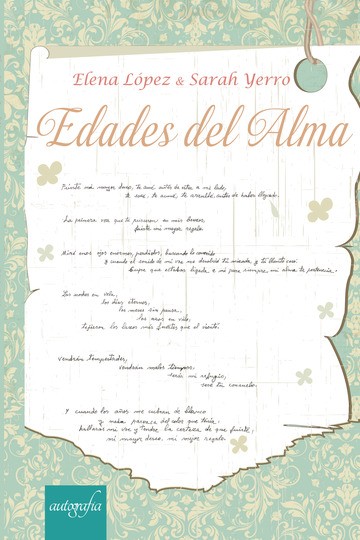 Elena López & Sarah Yerro
Edades del Alma
Fuiste mi mayor deseo, te amé antes de estar a mi lado,
te soñé, te sentí, te antes de haber llegado.
La primera vez que te pusieron en mis brazos,
fuiste mi mayor regalo.
Miré unos ojos enormes, perdidos, buscando lo conocido
y cuando el sonido de mi voz me devolvió tu mirada y tu llanto cesó.
Supe que estabas ligada a mí para siempre, mi alma te pertenecía.
Las noches en vela,
los días eternos,
los meses sin pausa,
los años en vilo,
tejieron los lazos más fuertes que el viento.
Vendrán tempestades,
vendrán malos tiempos,
serás mi refugio,
seré tu consuelo.
Y cuando los años me cubran de blanco
y nada parezca del color que tenía,
hallarás mi voz y tendré la certeza de que fuiste,
mi mayor deseo, mi mejor regalo.
autografía